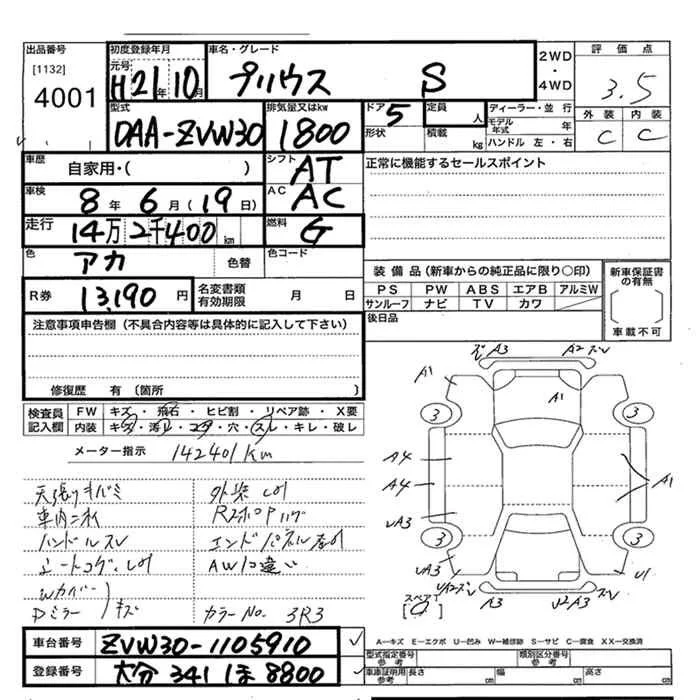 出品番号 初度登録年月 車名・グレード 2WD・4WD 評価点
[1132] 元号
4001 H21年10月 プリウス S 3.5
型式 排気量又はkw ドア 5 定員 人 ディーラー・並行 外装 内装
DAA-ZVW30 1800 形状 積載 kg モデル年式 年 ハンドル 左・右 C C
車歴 自家用・( ) シフト AT 正常に機能するセールスポイント
車検 8年 6月(19日) AC AC
走行 14万2千400km 燃料 G
色 アカ 色替 色コード
装備品(新車からの純正品に限り○印) 新車保証書の有無
R券 13,190円 名変書類有効期限 月 日 PS PW ABS エアB アルミW
サンルーフ ナビ TV カワ
注意事項申告欄(不具合内容等は具体的に記入して下さい) 後日品 車載不可
修復歴 有 〔箇所
検査員記入欄 FW キズ・飛石・ヒビ割・リペア跡・X要
内装 キズ・汚レ・コゲ・穴・スレ・キレ・破レ
メーター指示 142401km
天張りキバミ 外装
車内ニオイ
ハンドルスレ エンドパネル
シートコゲ AW
Wカバー
Dミラー キズ カラーNo. 3R3
A3 A2
A1 A1
3 3
A4
A4 A1
A3
3 3
A3
スペアT
A3
車台番号 ZVW30-1105910
A-キズ E-エクボ U-凹み W-補修跡 S-サビ C-腐食 XX-交換済
型式指定番号参考 類別区分番号参考
登録番号 大分 341 ほ 8800
車庫証明用参考 長さ cm 幅 cm 高さ cm